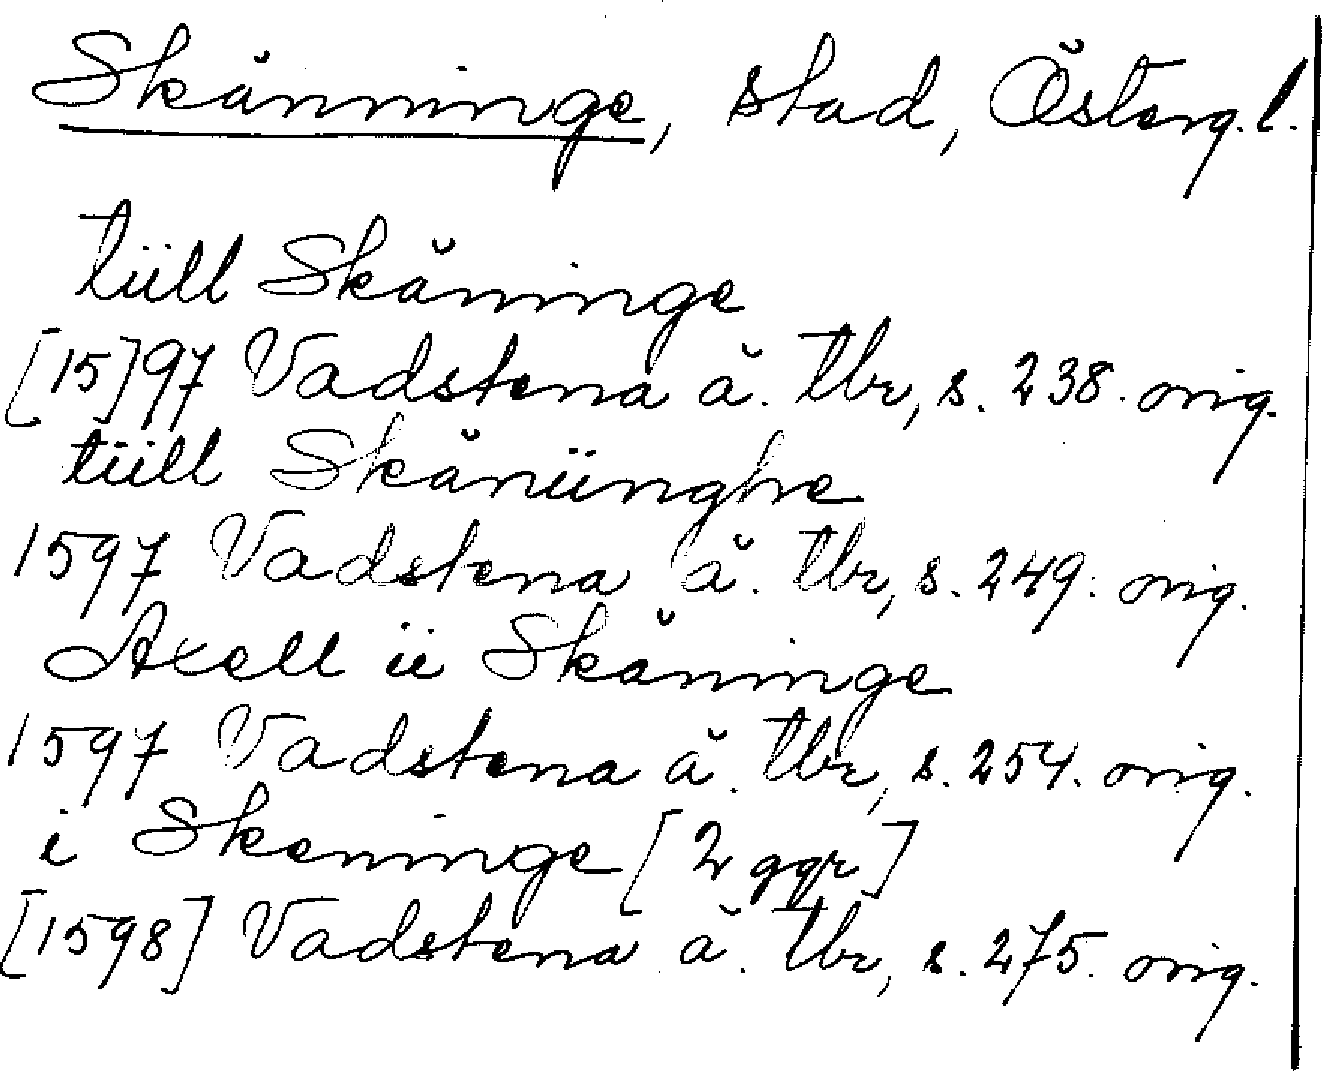 Skänninge, stad, Österg.l.
tüll Skäninge
[15]97 Vadstena ä. tbr, s. 238. orig.
tüll Skänünghe
1597 Vadstena ä. tbr, s. 249. orig.
Axell ü Skäninge
1597 Vadstena ä. tbr, s. 254. orig.
i Skeninge [2 ggr]
[1598] Vadstena ä. tbr, s. 275. orig.